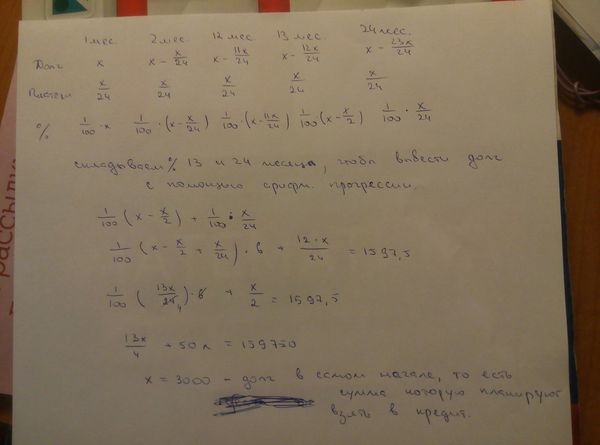 1 мес. 2 мес. 12 мес. 13 мес. 24 мес.
Долг x x - x/24 x - 11x/24 x - 12x/24 x - 23x/24
x/24 x/24 x/24 x/24 x/24
% 1/100 · x 1/100 · (x - x/24) 1/100 · (x - 11x/24) 1/100 (x - x/2) 1/100 · x/24
складываем % 13 и 24 месяца, чтобы вывести долг
с помощью арифм. прогрессии.
1/100 (x - x/2) + 1/100 · x/24
1/100 (x - x/2 + x/24) · 6 + 12·x/24 = 1597,5
1/100 (13x/24 4) · 6 + x/2 = 1597,5
13x/4 + 50x = 159750
x = 3000 - долг в самом начале, то есть
сумма которую планируют
взять в кредит.
рассыл